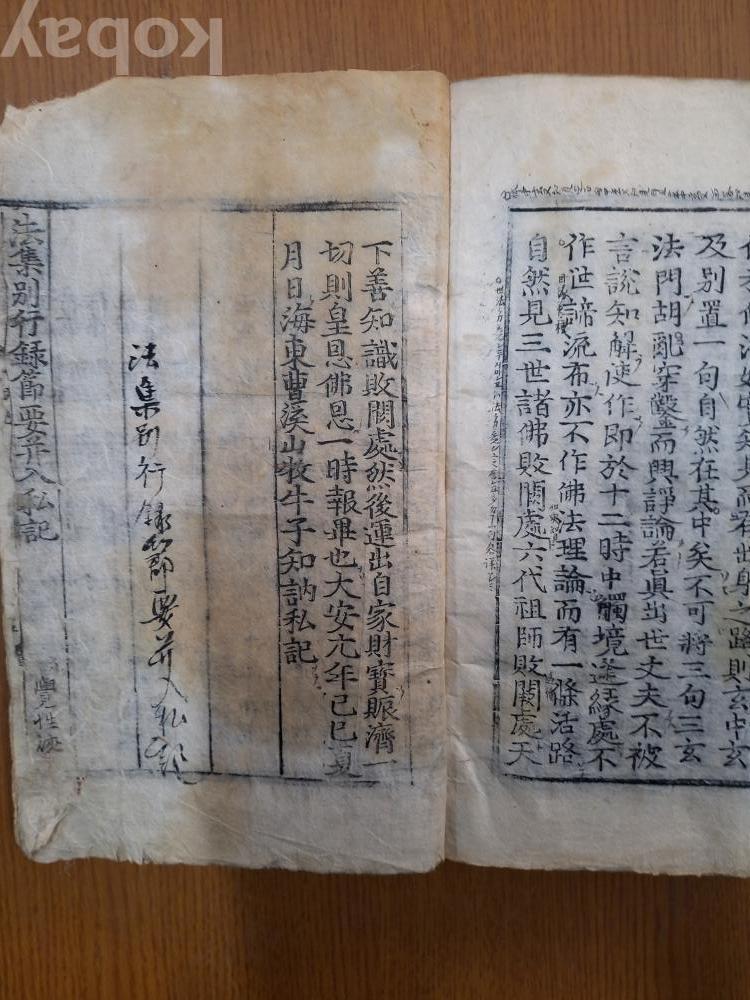 出身之路則玄中玄
及別置一句自然在其中矣不可將三句三玄
法門胡亂穿鑿而興諍論若眞出世丈夫不被
言說知解使作即於十二時中觸境逢緣處不
作世諦流布亦不作佛法理論而有一條活路
自然見三世諸佛敗闕處六代祖師敗闕處天
下善知識敗闕處然後運出自家財寶賑濟一
切則皇恩佛恩一時報畢也大安元年己巳夏
月日海東曹溪山牧牛子知訥私記
法集別行録節要并入私記
法集別行録節要并入私記
覺性
kobay